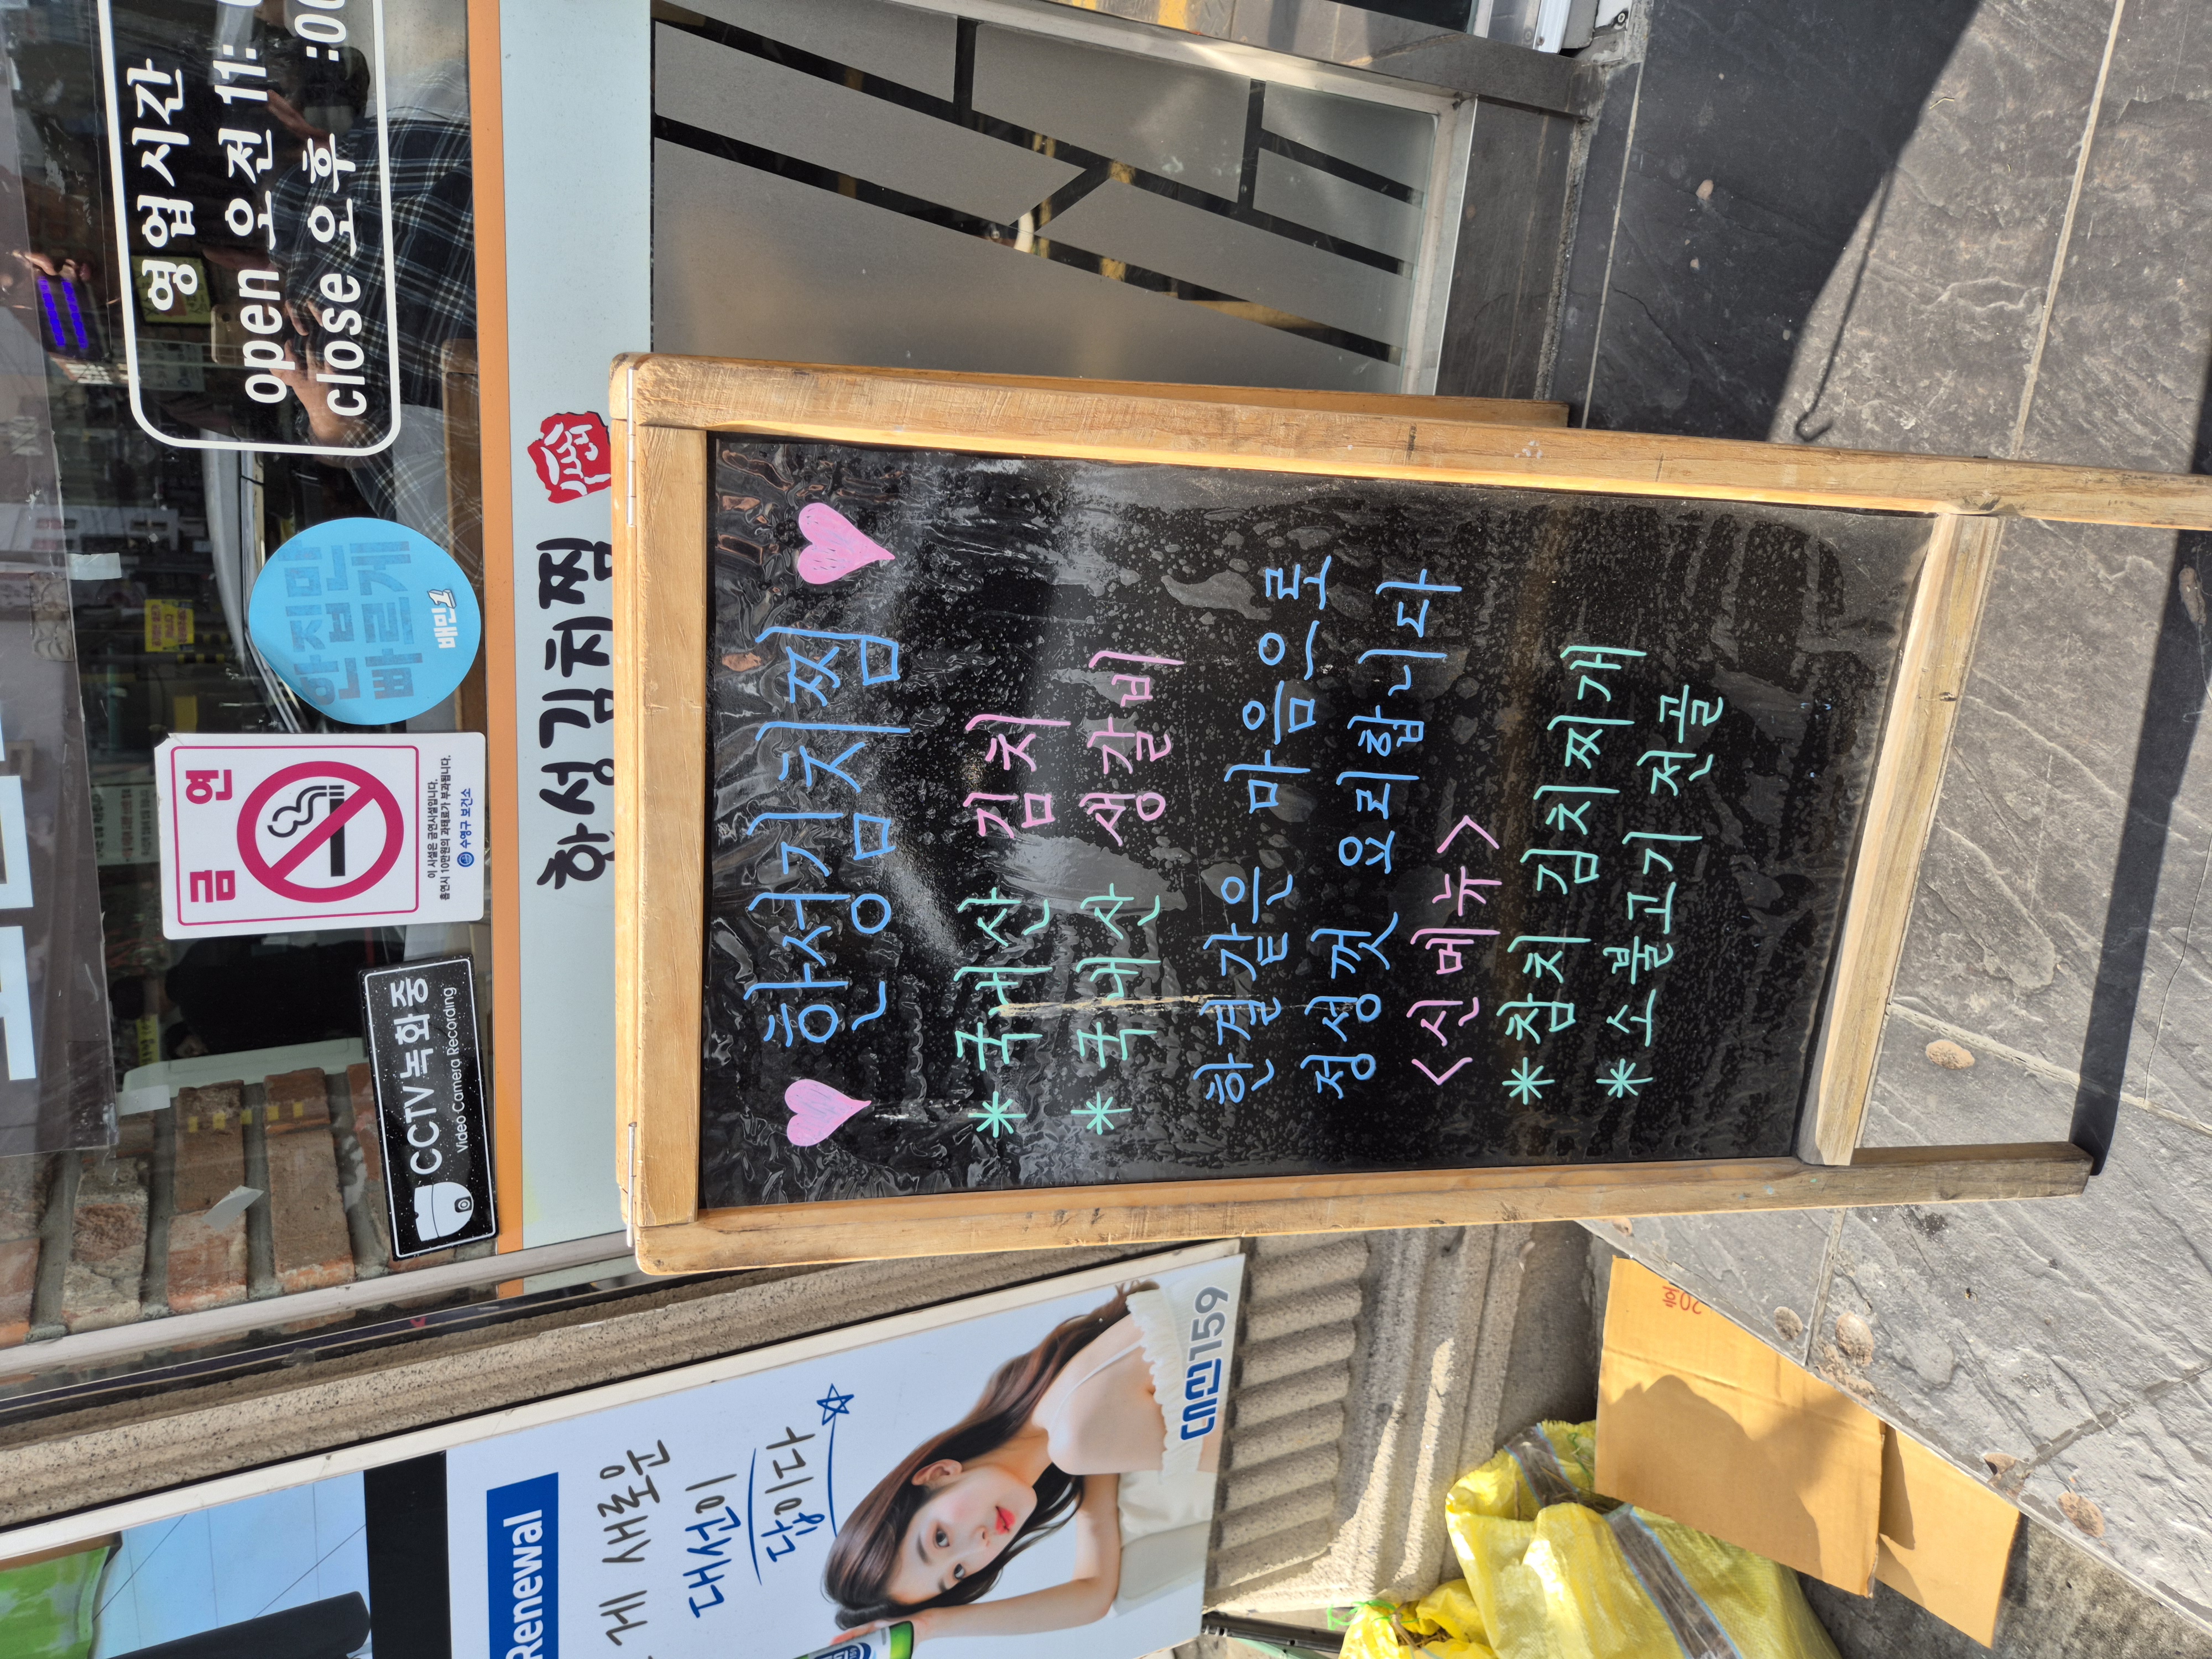 영업시간
open 오전 11:
close 오후 :00
한집만
빠르게
배민1
금연
이 시설은 금연시설입니다.
흡연시 10만원의 과태료가 부과됩니다.
수영구 보건소
CCTV 녹화중
Video Camera Recording
한성김치찜
한성김치찜
*국내산 김치
*국내산 생갈비
한결같은 마음으로
정성껏 요리합니다
<신메뉴>
*참치 김치찌개
*소불고기 전골
Renewal
게 새로운
대선이
답이다
대선159